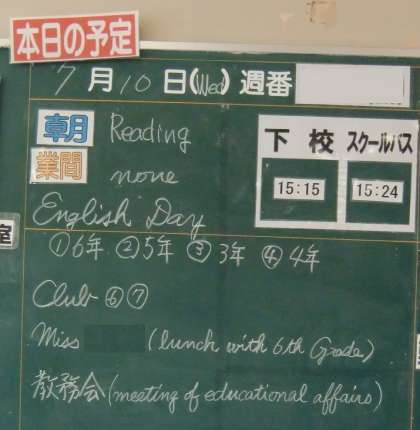 本日の予定
7月10日(Wed)週番
朝 Reading
業間 none
下校 スクールバス
15:15 15:24
English Day
①6年 ②5年 ③3年 ④4年
Club ⑥⑦
Miss (lunch with 6th Grade)
教務会(meeting of educational affairs)
室